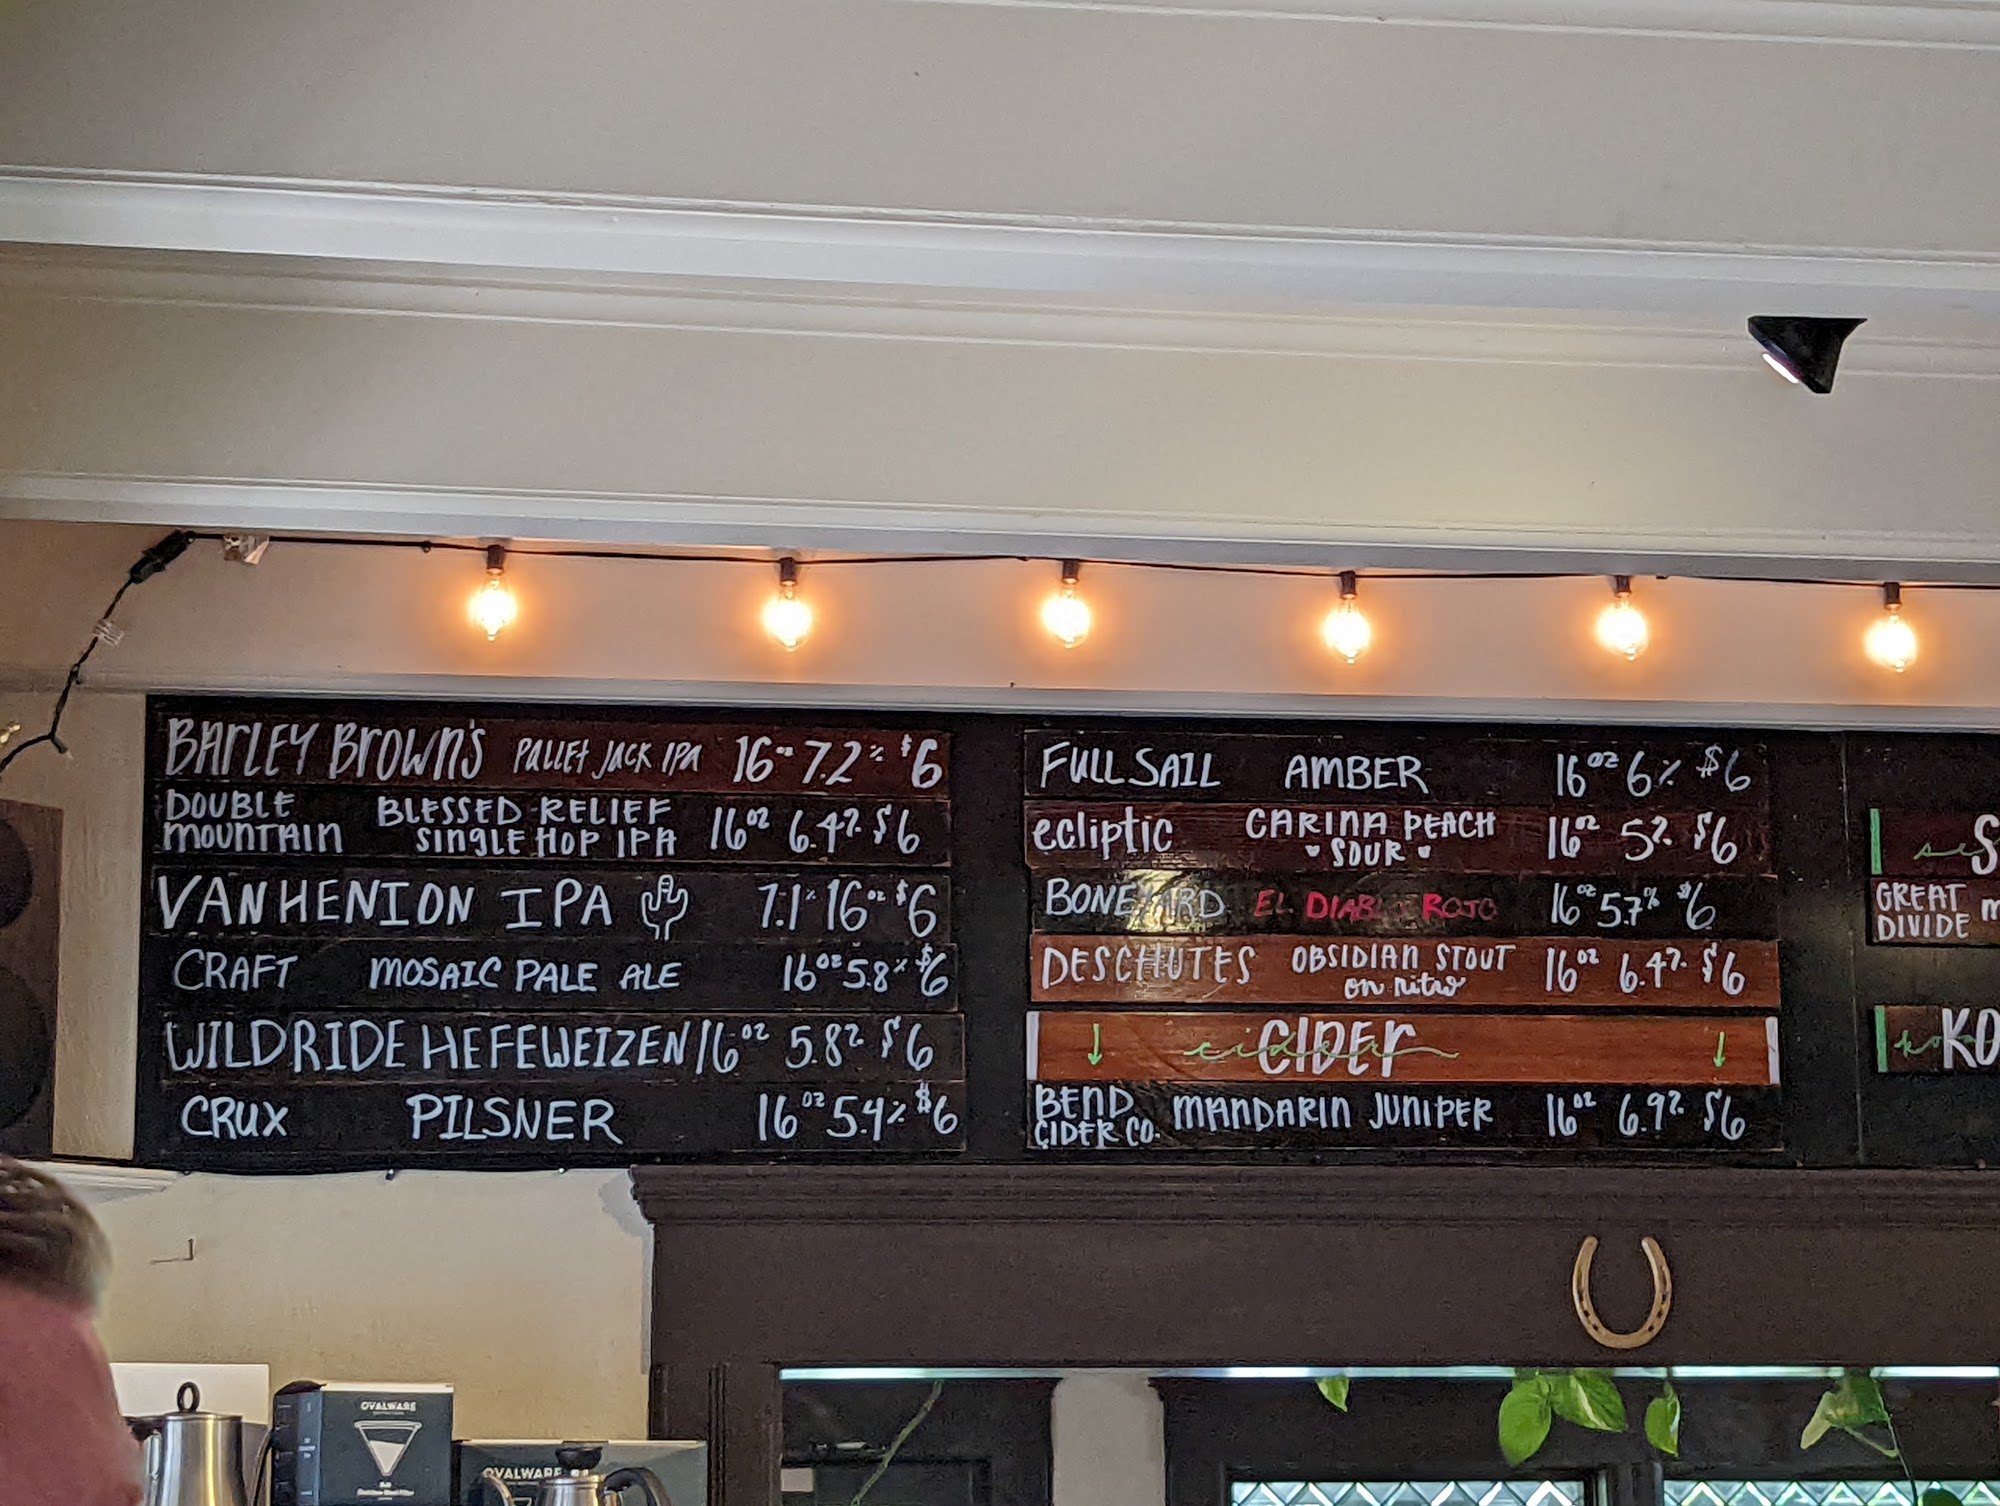 BARLEY BROWN'S PALLET JACK IPA 16oz 7.2% $6
DOUBLE MOUNTAIN BLESSED RELIEF SINGLE HOP IPA 16oz 6.4% $6
VAN HENION IPA 7.1% 16oz $6
CRAFT MOSAIC PALE ALE 16oz 5.8% $6
WILDRIDE HEFEWEIZEN 16oz 5.8% $6
CRUX PILSNER 16oz 5.4% $6
FULL SAIL AMBER 16oz 6% $6
ecliptic CARINA PEACH SOUR 16oz 5% $6
BONEYARD EL DIABLO ROJO 16oz 5.7% $6
DESCHUTES OBSIDIAN STOUT on nitro 16oz 6.4% $6
cider CIDER
BEND CIDER CO. MANDARIN JUNIPER 16oz 6.9% $6
GREAT
DIVIDE
KO
OVALWARE
OVALWARE